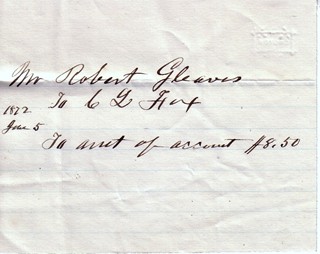 Mr Robert Gleaves
To C L Fox
1872
June 5
To amt of account $8.50